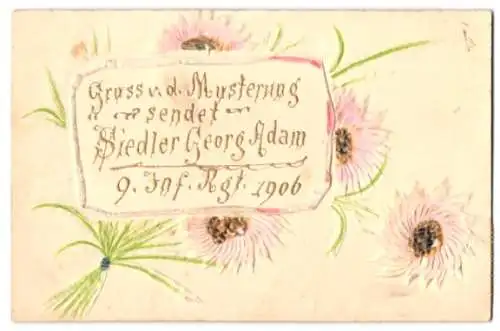 Gruss v. d. Musterung
sendet
Siedler Georg Adam
9. Inf. Rgt. 1906